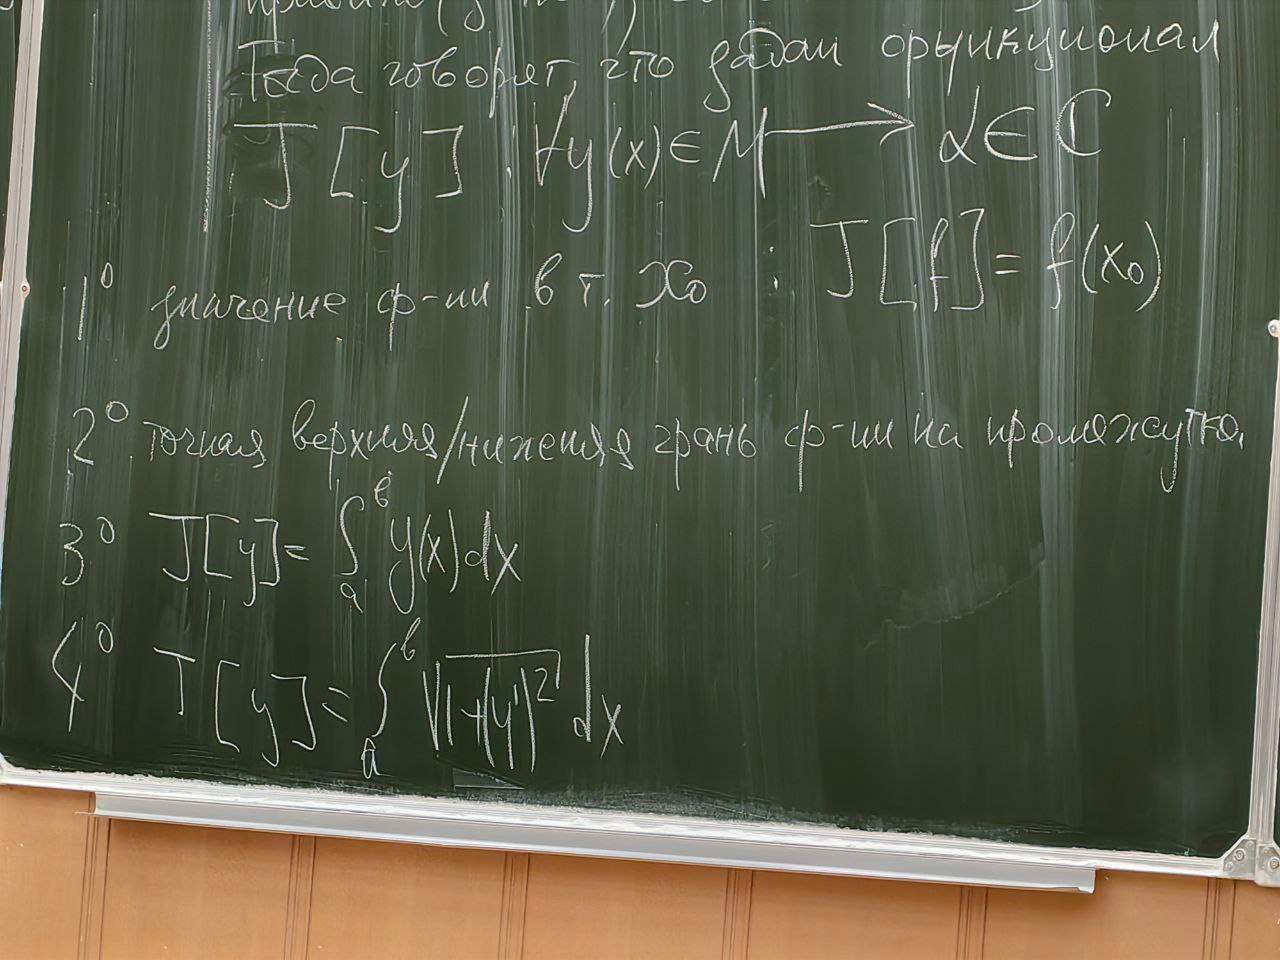 Тогда говорят, что задан функционал
J[y] ∀y(x)∈M → α∈C
1⁰ значение ф-ии в т. x₀ : J[f] = f(x₀)
2⁰ точная верхняя/нижняя грань ф-ии на промежутке.
3⁰ J[y] = ∫ₐᵇ y(x)dx
4⁰ J[y] = ∫ₐᵇ √(1+(y')²) dx